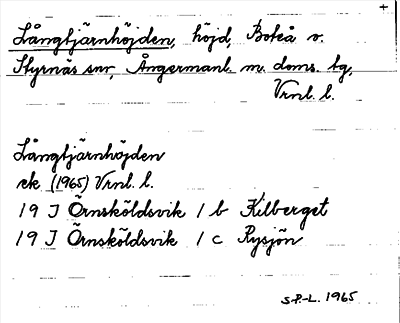 +
Långtjärnhöjden, höjd, Boteå o.
Styrnäs snr, Ångermanl. m. doms. tg,
Vrnl. l.
Långtjärnhöjden
ek (1965) Vrnl. l.
19 J Örnsköldsvik 1 b Kilberget
19 J Örnsköldsvik 1 c Rysjön
S.P.-L. 1965